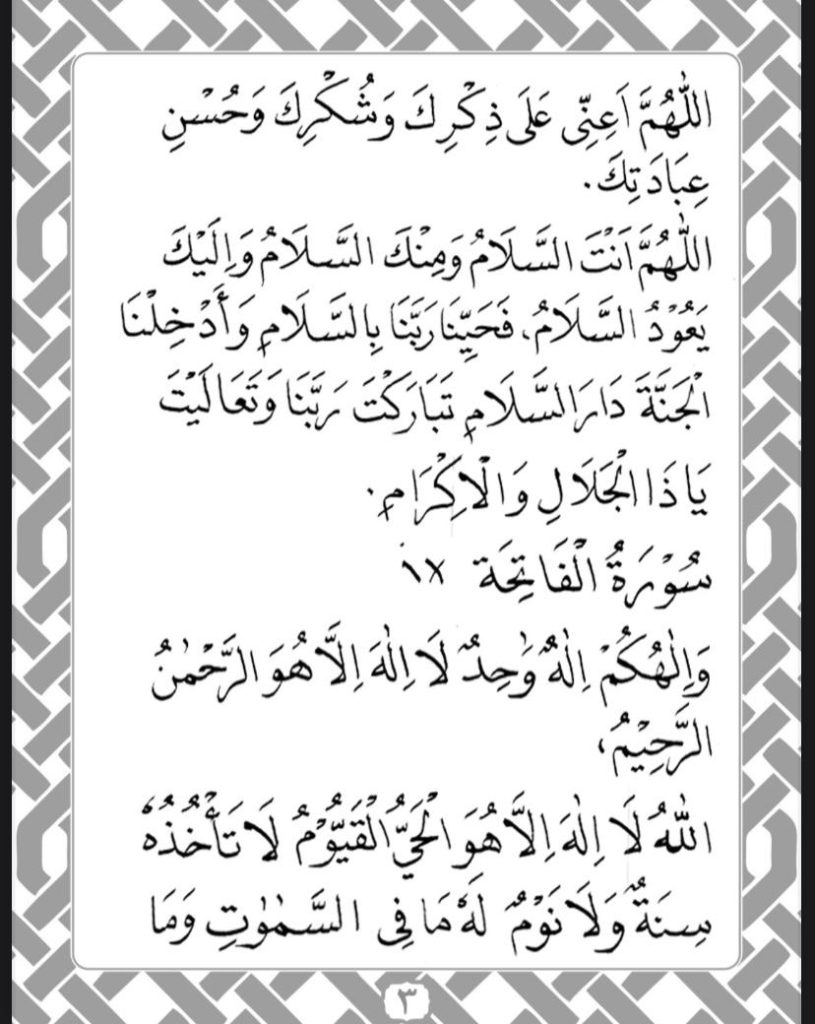 اللّٰهُمَّ اَعِنِّى عَلَى ذِكْرِكَ وَشُكْرِكَ وَحُسْنِ
عِبَادَتِكَ.
اللّٰهُمَّ اَنْتَ السَّلَامُ وَمِنْكَ السَّلَامُ وَاِلَيْكَ
يَعُوْدُ السَّلَامُ، فَحَيِّنَا رَبَّنَا بِالسَّلَامِ وَأَدْخِلْنَا
الْجَنَّةَ دَارَ السَّلَامِ تَبَارَكْتَ رَبَّنَا وَتَعَالَيْتَ
يَا ذَا الْجَلَالِ وَالْاِكْرَامِ.
سُوْرَةُ الْفَاتِحَة ١x
وَاِلٰهُكُمْ اِلٰهٌ وَٰحِدٌ لَا اِلٰهَ اِلَّا هُوَ الرَّحْمٰنُ
الرَّحِيْمُ،
اللّٰهُ لَا اِلٰهَ اِلَّا هُوَ الْحَيُّ الْقَيُّوْمُ لَا تَأْخُذُهُ
سِنَةٌ وَلَا نَوْمٌ لَهُ مَا فِى السَّمٰوٰتِ وَمَا
٣